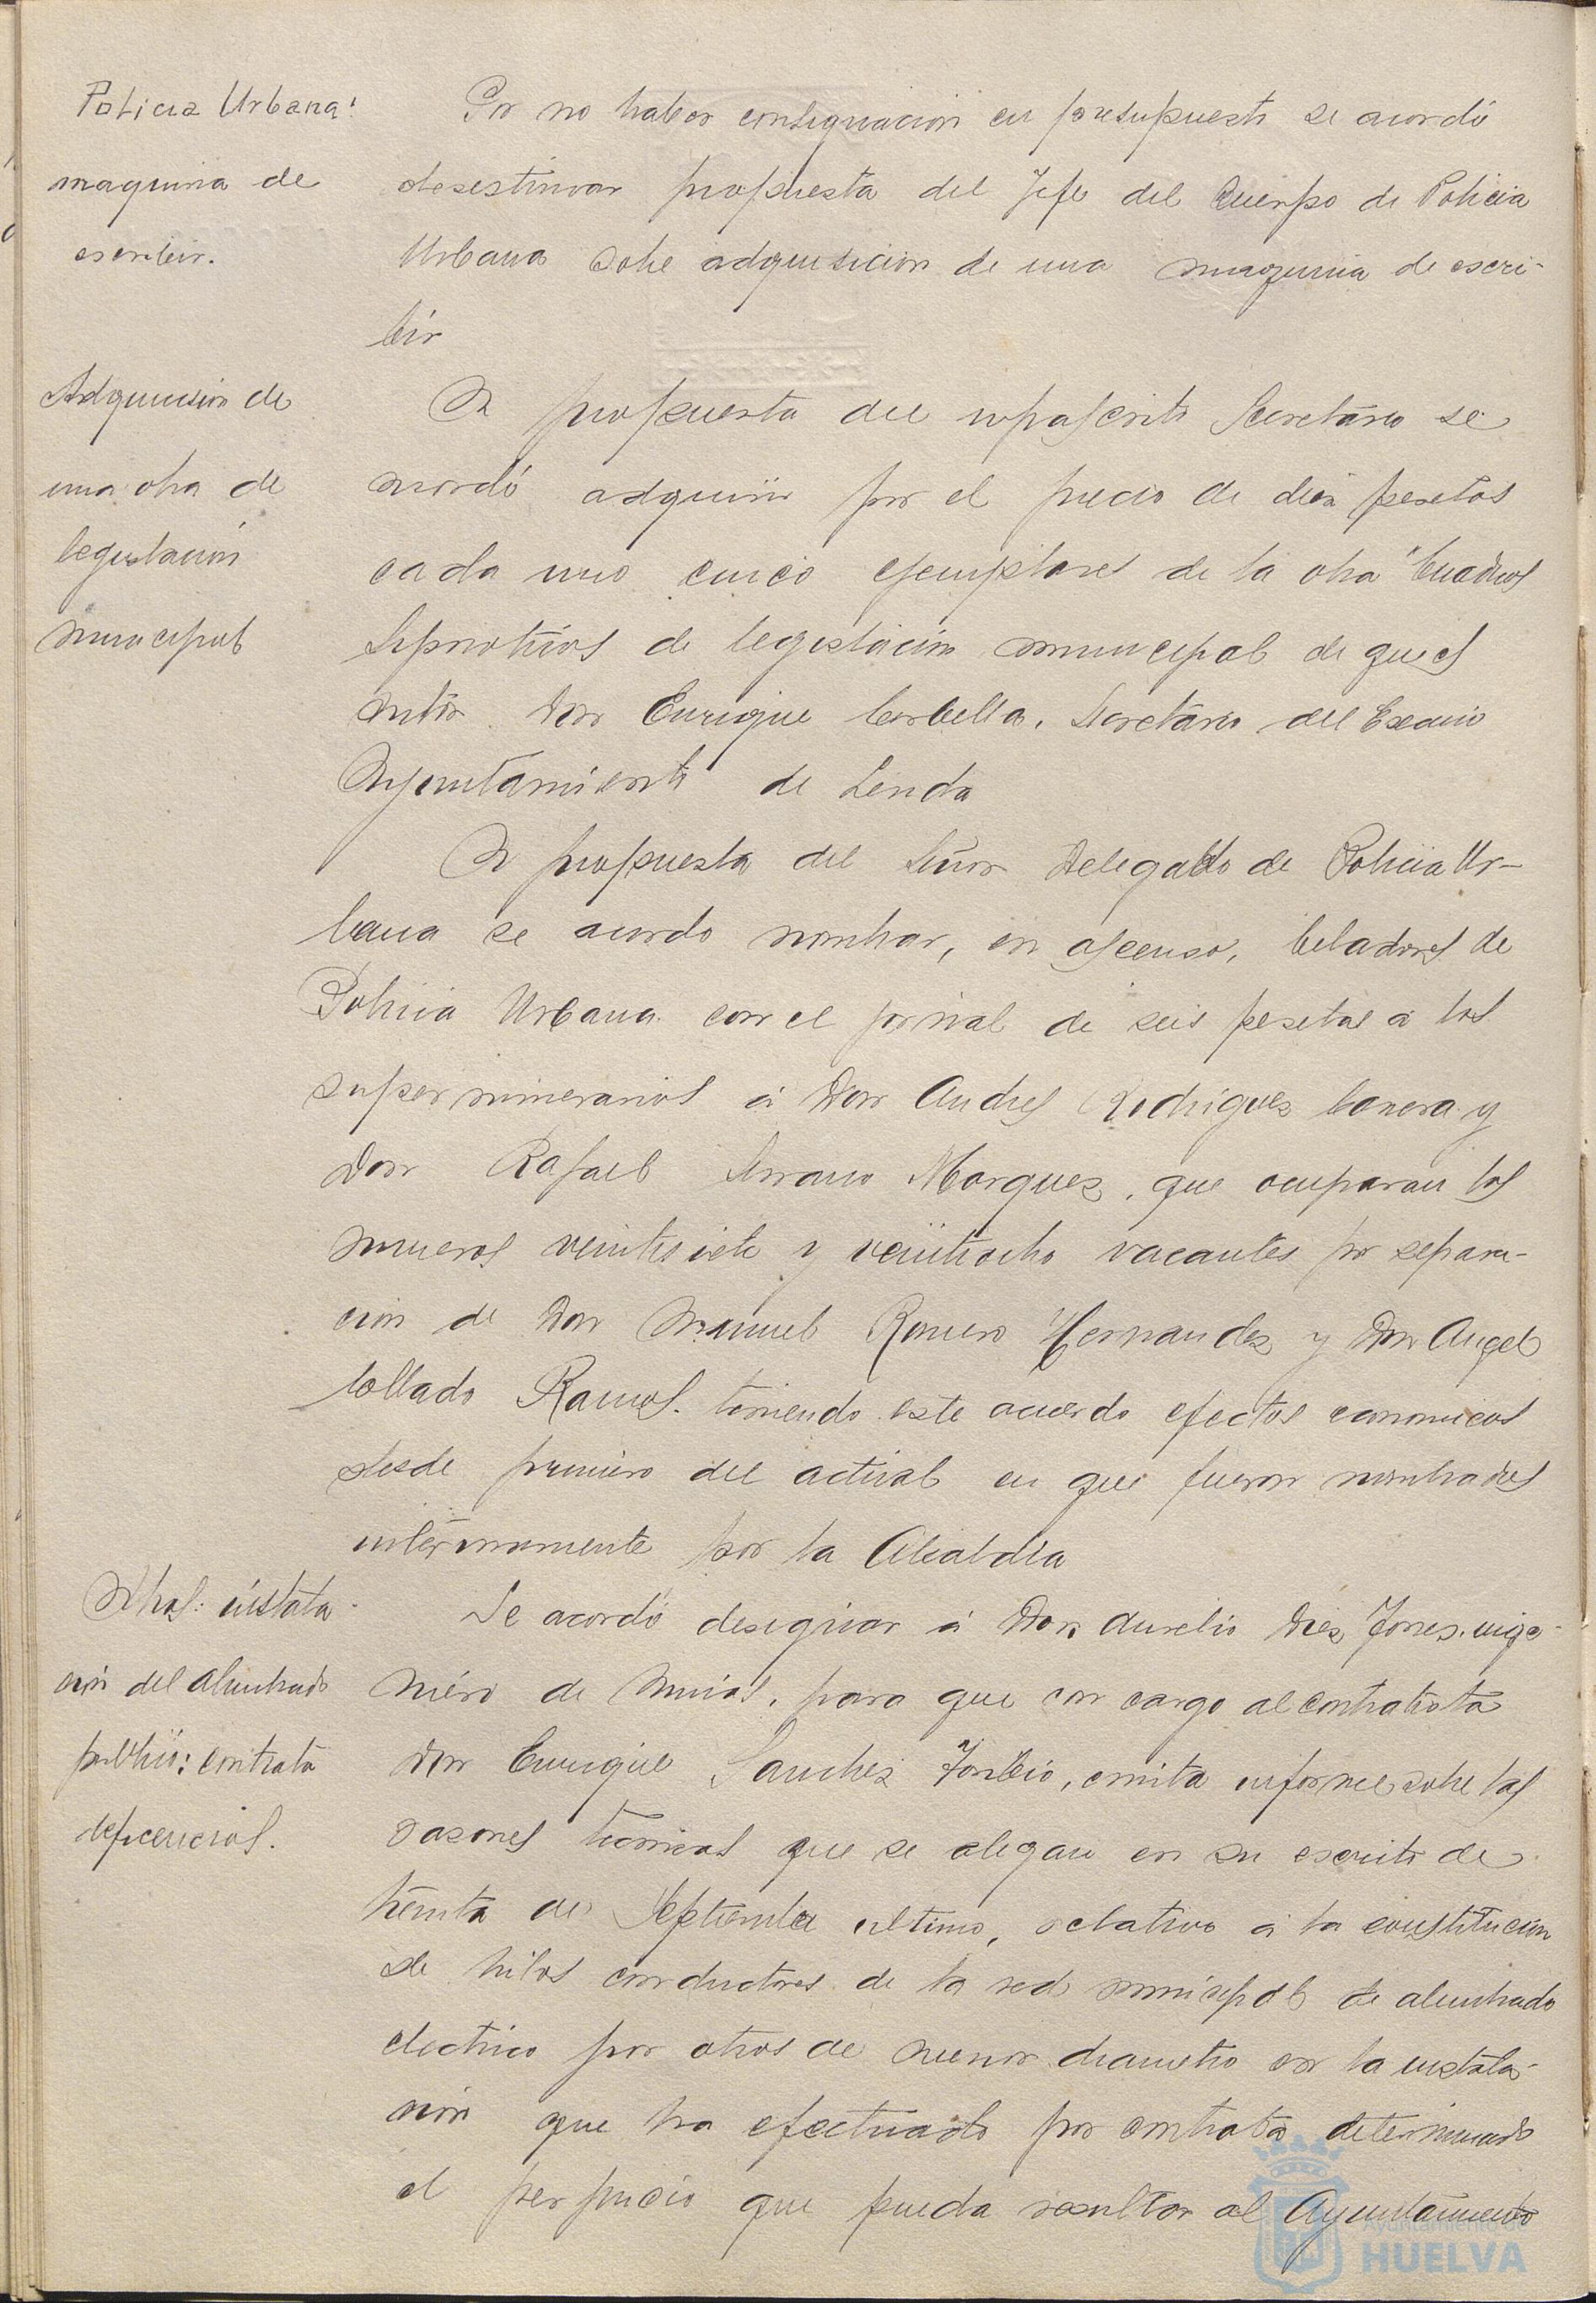 Policia Urbana:
maquina de
escribir.
Por no haber consignacion en presupuesto se acordó
desestimar propuesta del Jefe del Cuerpo de Policia
Urbana sobre adquisicion de una maquina de escri-
bir
Adquisicion de
una obra de
legislacion
municipal
A propuesta del infrascrito Secretario se
acordó adquirir por el precio de diez pesetas
cada uno cinco ejemplares de la obra "Cuadros
Sipnoticos de legislacion municipal de que es
autor Don Enrique Corbella, Secretario del Excmo
Ayuntamiento de Lerida
A propuesta del Señor Delegado de Policia Ur-
bana se acordo nombrar, en ascenso, Celadores de
Policia Urbana con el jornal de seis pesetas a los
supernumerarios a Don Andres Rodriguez y
Don Rafael Serrano Marquez, que ocuparan los
numeros veintisiete y veintiocho vacantes por separa-
cion de Don Manuel Romero Hernandez y Don Angel
Collado Ramos. teniendo este acuerdo efectos economicos
desde primero del actual en que fueron nombrados
interinamente por la Alcaldia
Obras: instala-
cion del alumbrado
publico: contrata
deficencias.
Se acordó designar a Don Aurelio Diez Torres. inge-
niero de Minas, para que con cargo al contratista
Don Enrique Sanchez Toribio, emita informe sobre las
razones tecnicas que se alegan en su escrito de
treinta de Septiembre ultimo, relativo a la constitucion
de hilos conductores de la red municipal de alumbrado
electrico por otros de menor diametro en la instala-
cion que ha efectuado por contrata determinando
el perjuicio que pueda resultar al Ayuntamiento
Ayuntamiento de
HUELVA